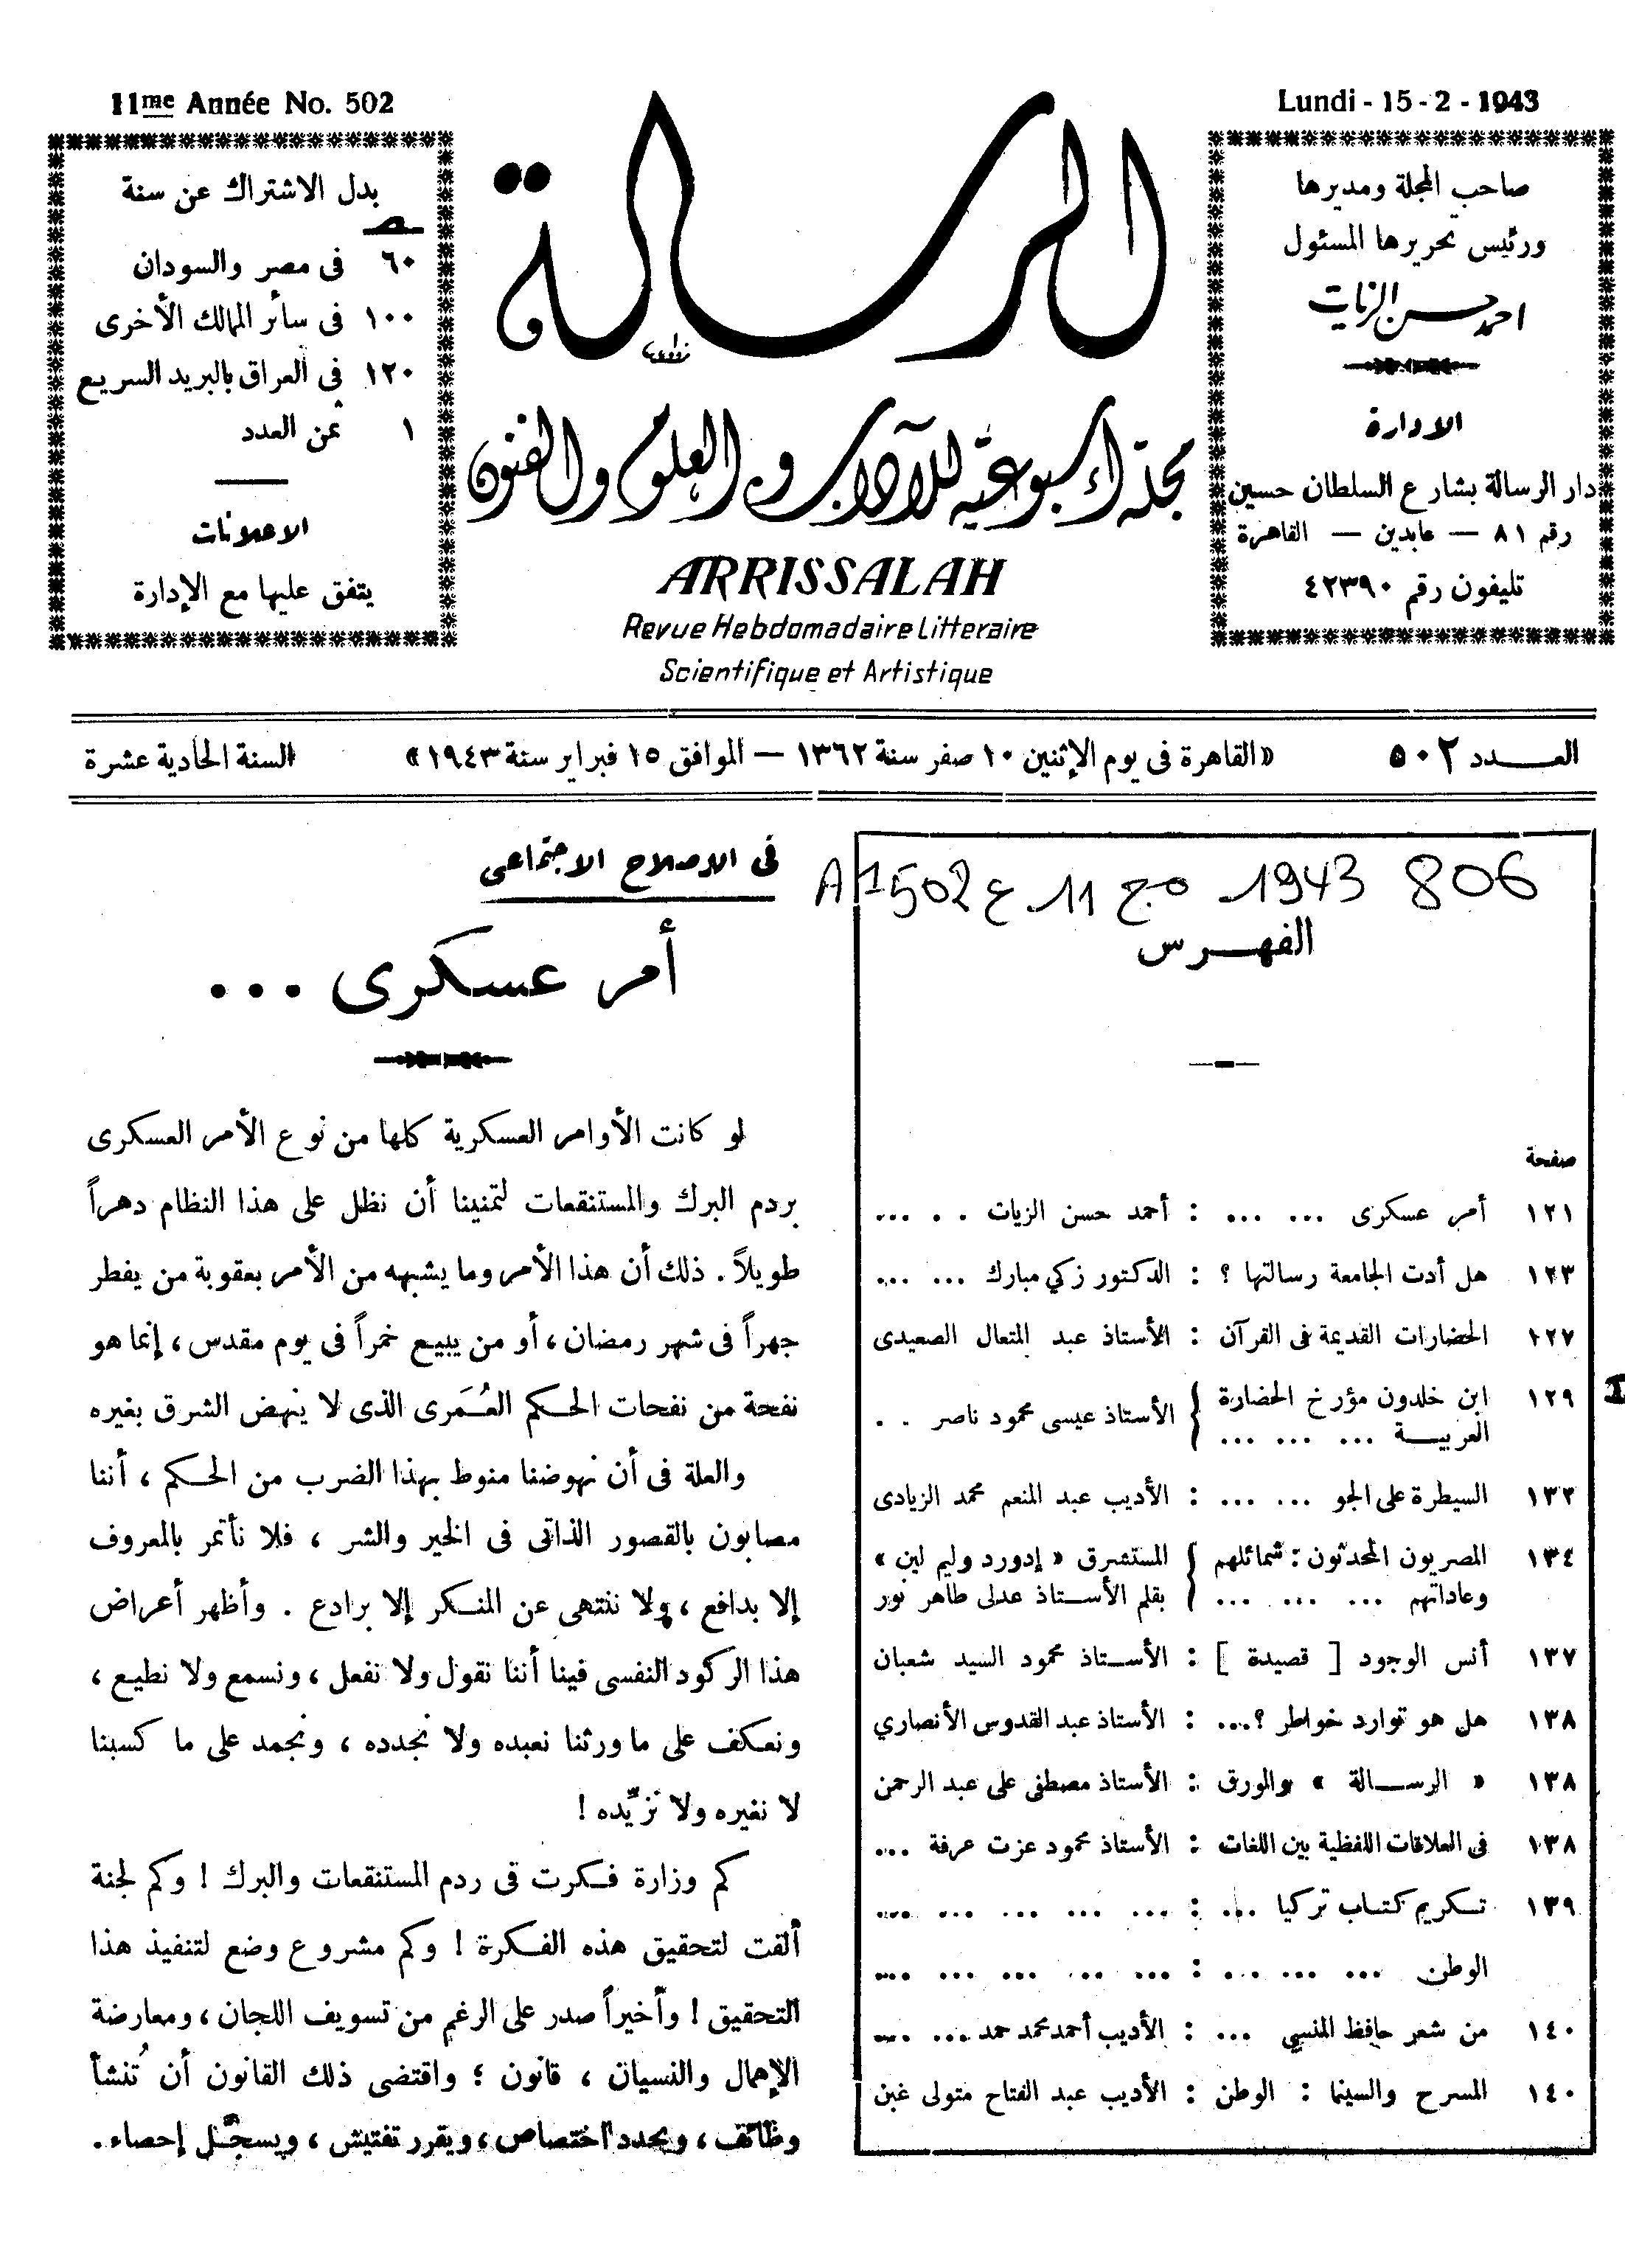 11me Année No. 502
Lundi - 15 - 2 - 1943
صاحب المجلة ومديرها
ورئيس تحريرها المسئول
احمد حسن الزيات
الادارة
دار الرسالة بشارع السلطان حسين
رقم ٨١ — عابدين — القاهرة
تليفون رقم ٤٢٣٩٠
الرسالة
مجلة أسبوعية للآداب والعلوم والفنون
ARRISSALAH
Revue Hebdomadaire Litteraire
Scientifique et Artistique
بدل الاشتراك عن سنة
٦٠ فى مصر والسودان
١٠٠ فى سائر الممالك الأخرى
١٢٠ فى العراق بالبريد السريع
١ ثمن العدد
الاعلانات
يتفق عليها مع الإدارة
العـــدد ٥٠٢ «القاهرة فى يوم الإثنين ١٠ صفر سنة ١٣٦٢ — الموافق ١٥ فبراير سنة ١٩٤٣» السنة الحادية عشرة
806 1943 مج 11 ع 502
الفهــرس
صفحة
١٢١ أمر عسكرى ... ... : أحمد حسن الزيات . . ...
١٢٣ هل أدت الجامعة رسالتها ؟ : الدكتور زكي مبارك ... ...
١٢٧ الحضارات القديمة فى القرآن : الأستاذ عبد المتعال الصعيدى
١٢٩ ابن خلدون مؤرخ الحضارة العربيــة ... ... ... } الأستاذ عيسى محمود ناصر . .
١٣٣ السيطرة على الجو ... ... : الأديب عبد المنعم محمد الزيادى
١٣٤ المصريون المحدثون : شمائلهم } المستشرق « إدورد وليم لين »
وعاداتهم ... ... ... } بقلم الأســتاذ عدلى طاهر نور
١٣٧ أنس الوجود [ قصيدة ] : الأســتاذ محمود السيد شعبان
١٣٨ هل هو توارد خواطر ؟... : الأستاذ عبد القدوس الأنصاري
١٣٨ « الرســـالة » والورق : الأستاذ مصطفى على عبد الرحمن
١٣٨ فى العلاقات اللفظية بين اللغات : الأستاذ محمود عزت عرفة ...
١٣٩ تـكريم كتـاب تركيا ... : ... ... ... ... ...
الوطن ... ... ... : ... ... ... ... ...
١٤٠ من شعر حافظ المنسي ... : الأديب أحمد محمد حمد ... ...
١٤٠ المسرح والسينما : الوطن : الأديب عبد الفتاح متولى غبن
فى الاصلاح الاجتماعى
أمر عسكرى ...
لو كانت الأوامر العسكرية كلها من نوع الأمر العسكرى
بردم البرك والمستنقعات لتمنينا أن نظل على هذا النظام دهراً
طويلاً . ذلك أن هذا الأمر وما يشبهه من الأمر بعقوبة من يفطر
جهراً فى شهر رمضان ، أو من يبيع خمراً فى يوم مقدس ، إنما هو
نفحة من نفحات الحـكم العُمَرى الذى لا ينهض الشرق بغيره
والعلة فى أن نهوضنا منوط بهذا الضرب من الحـكم ، أننا
مصابون بالقصور الذاتى فى الخير والشر ، فلا نأتمر بالمعروف
إلا بدافع ، ولا ننتهى عن المنـكر إلا برادع . وأظهر أعراض
هذا الركود النفسى فينا أننا نقول ولا نفعل ، ونسمع ولا نطيع ،
ونعكف على ما ورثنا نعبده ولا نجدده ، ونجمد على ما كسبنا
لا نغيره ولا نزيِّده !
كم وزارة فـكرت فى ردم المستنقعات والبرك ! وكم لجنة
ألفت لتحقيق هذه الفـكرة ! وكم مشروع وضع لتنفيذ هذا
التحقيق ! وأخيراً صدر على الرغم من تسويف اللجان ، ومعارضة
الإهمال والنسيان ، قانون ؛ واقتضى ذلك القانون أن تُنشأ
وظائف ، ويحدد اختصاص ، ويقرر تفتيش ، ويسجَّـل إحصاء .